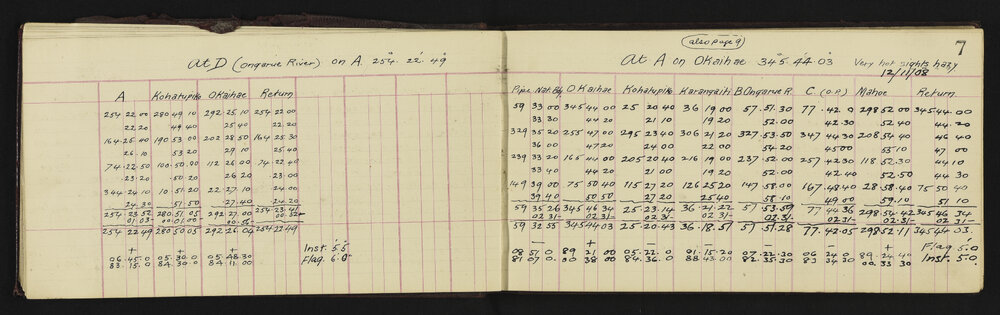 at D (ongarue River) on A. 254. 22. 49
A Kohatupiko OKaihae Return
254 22 00 280 49 10 292 25 10 254 22 00
22 20 49 40 25 40 22 20
164 25 40 190 53 00 202 28 50 164 25 30
26 10 53 20 29 10 25 40
74 22 50 100 50 00 112 26 00 74 22 40
23 20 50 20 26 20 23 00
344 24 10 10 51 20 22 27 10 24 00
24 30 51 50 27 40 24 20
254 23 52 280 51 05 292 27 00 254 23 41
01 03 00 01 00 00 56 00 52
254 22 49 280 50 05 292 26 04 254 22 49
+ + + Inst. 5.5
06 45 0 05 30 0 05 48 30 Flag 6.0
83 15 0 84 30 0 84 11 00
(also page 9)
7
at A on OKaihae 345. 44. 03 Very hot sights hazy
12/11/08
Pipe Nat Bdy OKaihae Kohatupiko Karangaiti B Ongarue R C. (O.P.) Mahoe Return.
59 33 00 345 44 00 25 20 40 36 19 00 57. 51. 30 77. 42. 0 298 52 00 345 44 00
33 30 44 20 21 10 19 20 52. 00 42. 30 52 40 44 20
329 35 20 255 47 00 295 23 40 306 21 20 327. 53. 50 347 44 30 208 54 40 46 40
36 00 47 20 24 00 22 00 54. 20 45 00 55 10 47 00
239 33 20 165 44 00 205 20 40 216 19 00 237. 52. 00 257 42 30 118 52. 30 44 10
33 40 44 20 21 00 19 20 52. 20 42. 40 52. 50 44 30
149 39 00 75 50 40 115 27 20 126 25 20 147. 58. 00 167. 48 40 28. 58. 40 75 50 40
39 40 50 50 27 20 25 40 58. 10 49 00 59. 10 51 10
59 35 26 345 46 34 25. 23. 14 36. 21. 22 57 53. 59 77 44 36 298. 54. 42 345 46 34
02 31 02 31 02 31 02 31 02 31 02 31 02 31 02 31
59 32 55 345 44 03 25. 20. 43 36. 18. 57 57. 51. 28 77. 42. 05 298 52. 11 345 44 03.
— + — — — — + Flag 5.0
08 51 0 89 21 00 05. 22. 0 01. 15. 20 07. 22. 30 06 24 0 89. 24. 40 Inst. 5.0.
81 07 0. 00 38 00 84. 36. 0 88. 43. 00 82. 35. 30 83 34 20 00. 33 30